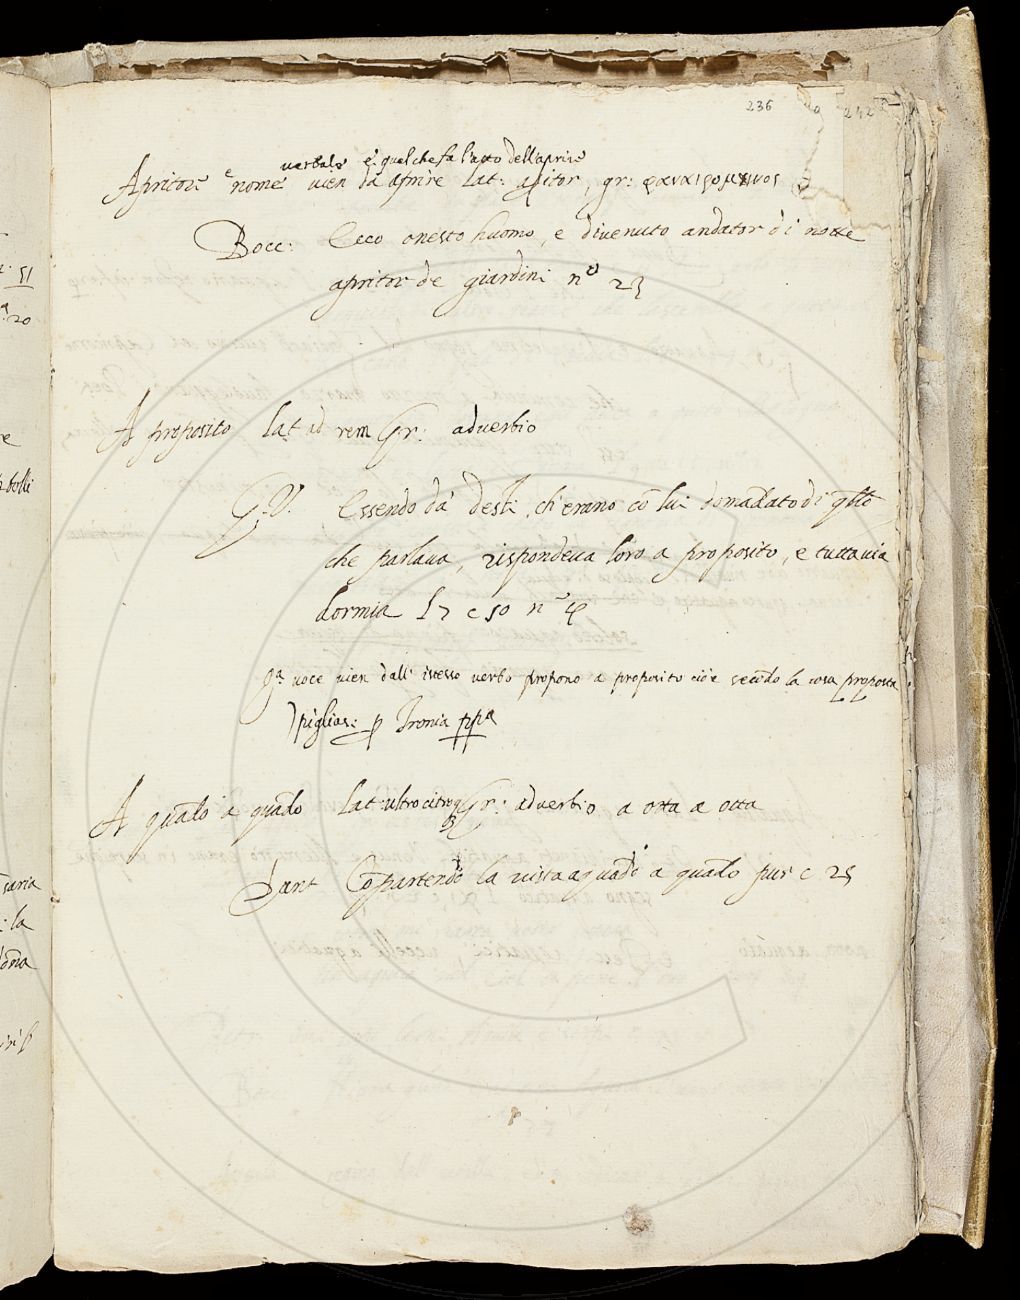 236
242
verbale è quel che fa l'atto dell'aprire
Apritore è nome vien da aprire Lat: apitor, gr:
Bocc: Ecco onesto huomo, e divenuto andator di notte
apritor de giardini n° 23
A proposito Lat ad rem Gr: adverbio
G.V. Essendo da desti, ch'erano cō lui domādato di qllo
che parlava, rispondeva loro a proposito, e tuttavia
dormia l 7 c 50 n
qa voce vien dall' istesso verbo propono a proposito cioè secōdo la cosa proposta
piglias: p Ironia ppa
A quādo a quādo Lat: ultro citroq Gr: adverbio a otta a otta
Dant Cōpartendo la vista a quādo a quādo pur c 25
51
20
saria
: la